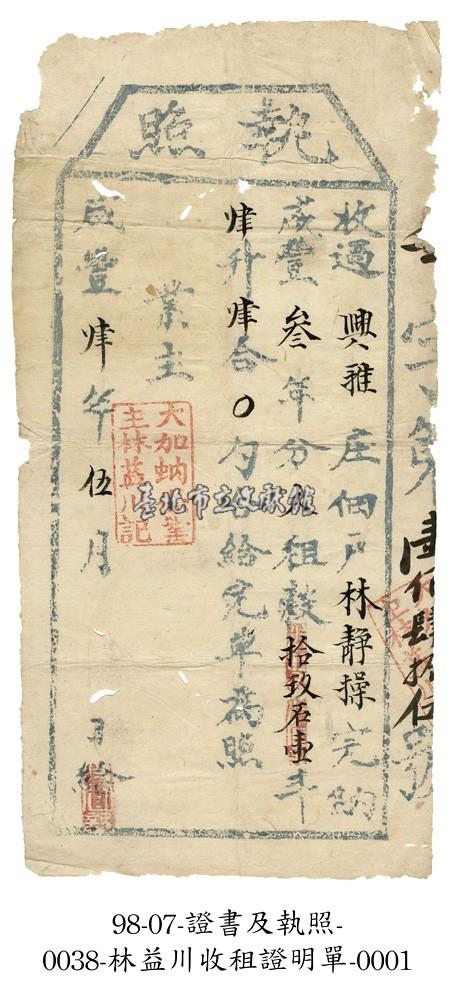 執照
字第壹佰肆拾伍號
收過興雅庄佃戶林靜操完納
咸豐叁年分租穀拾玖石壹斗
肆升肆合0勺合給完單為照
業主
大加蚋業
主林益川記
咸豐肆年伍月 日給
臺北市立文獻館
98-07-證書及執照-
0038-林益川收租證明單-0001